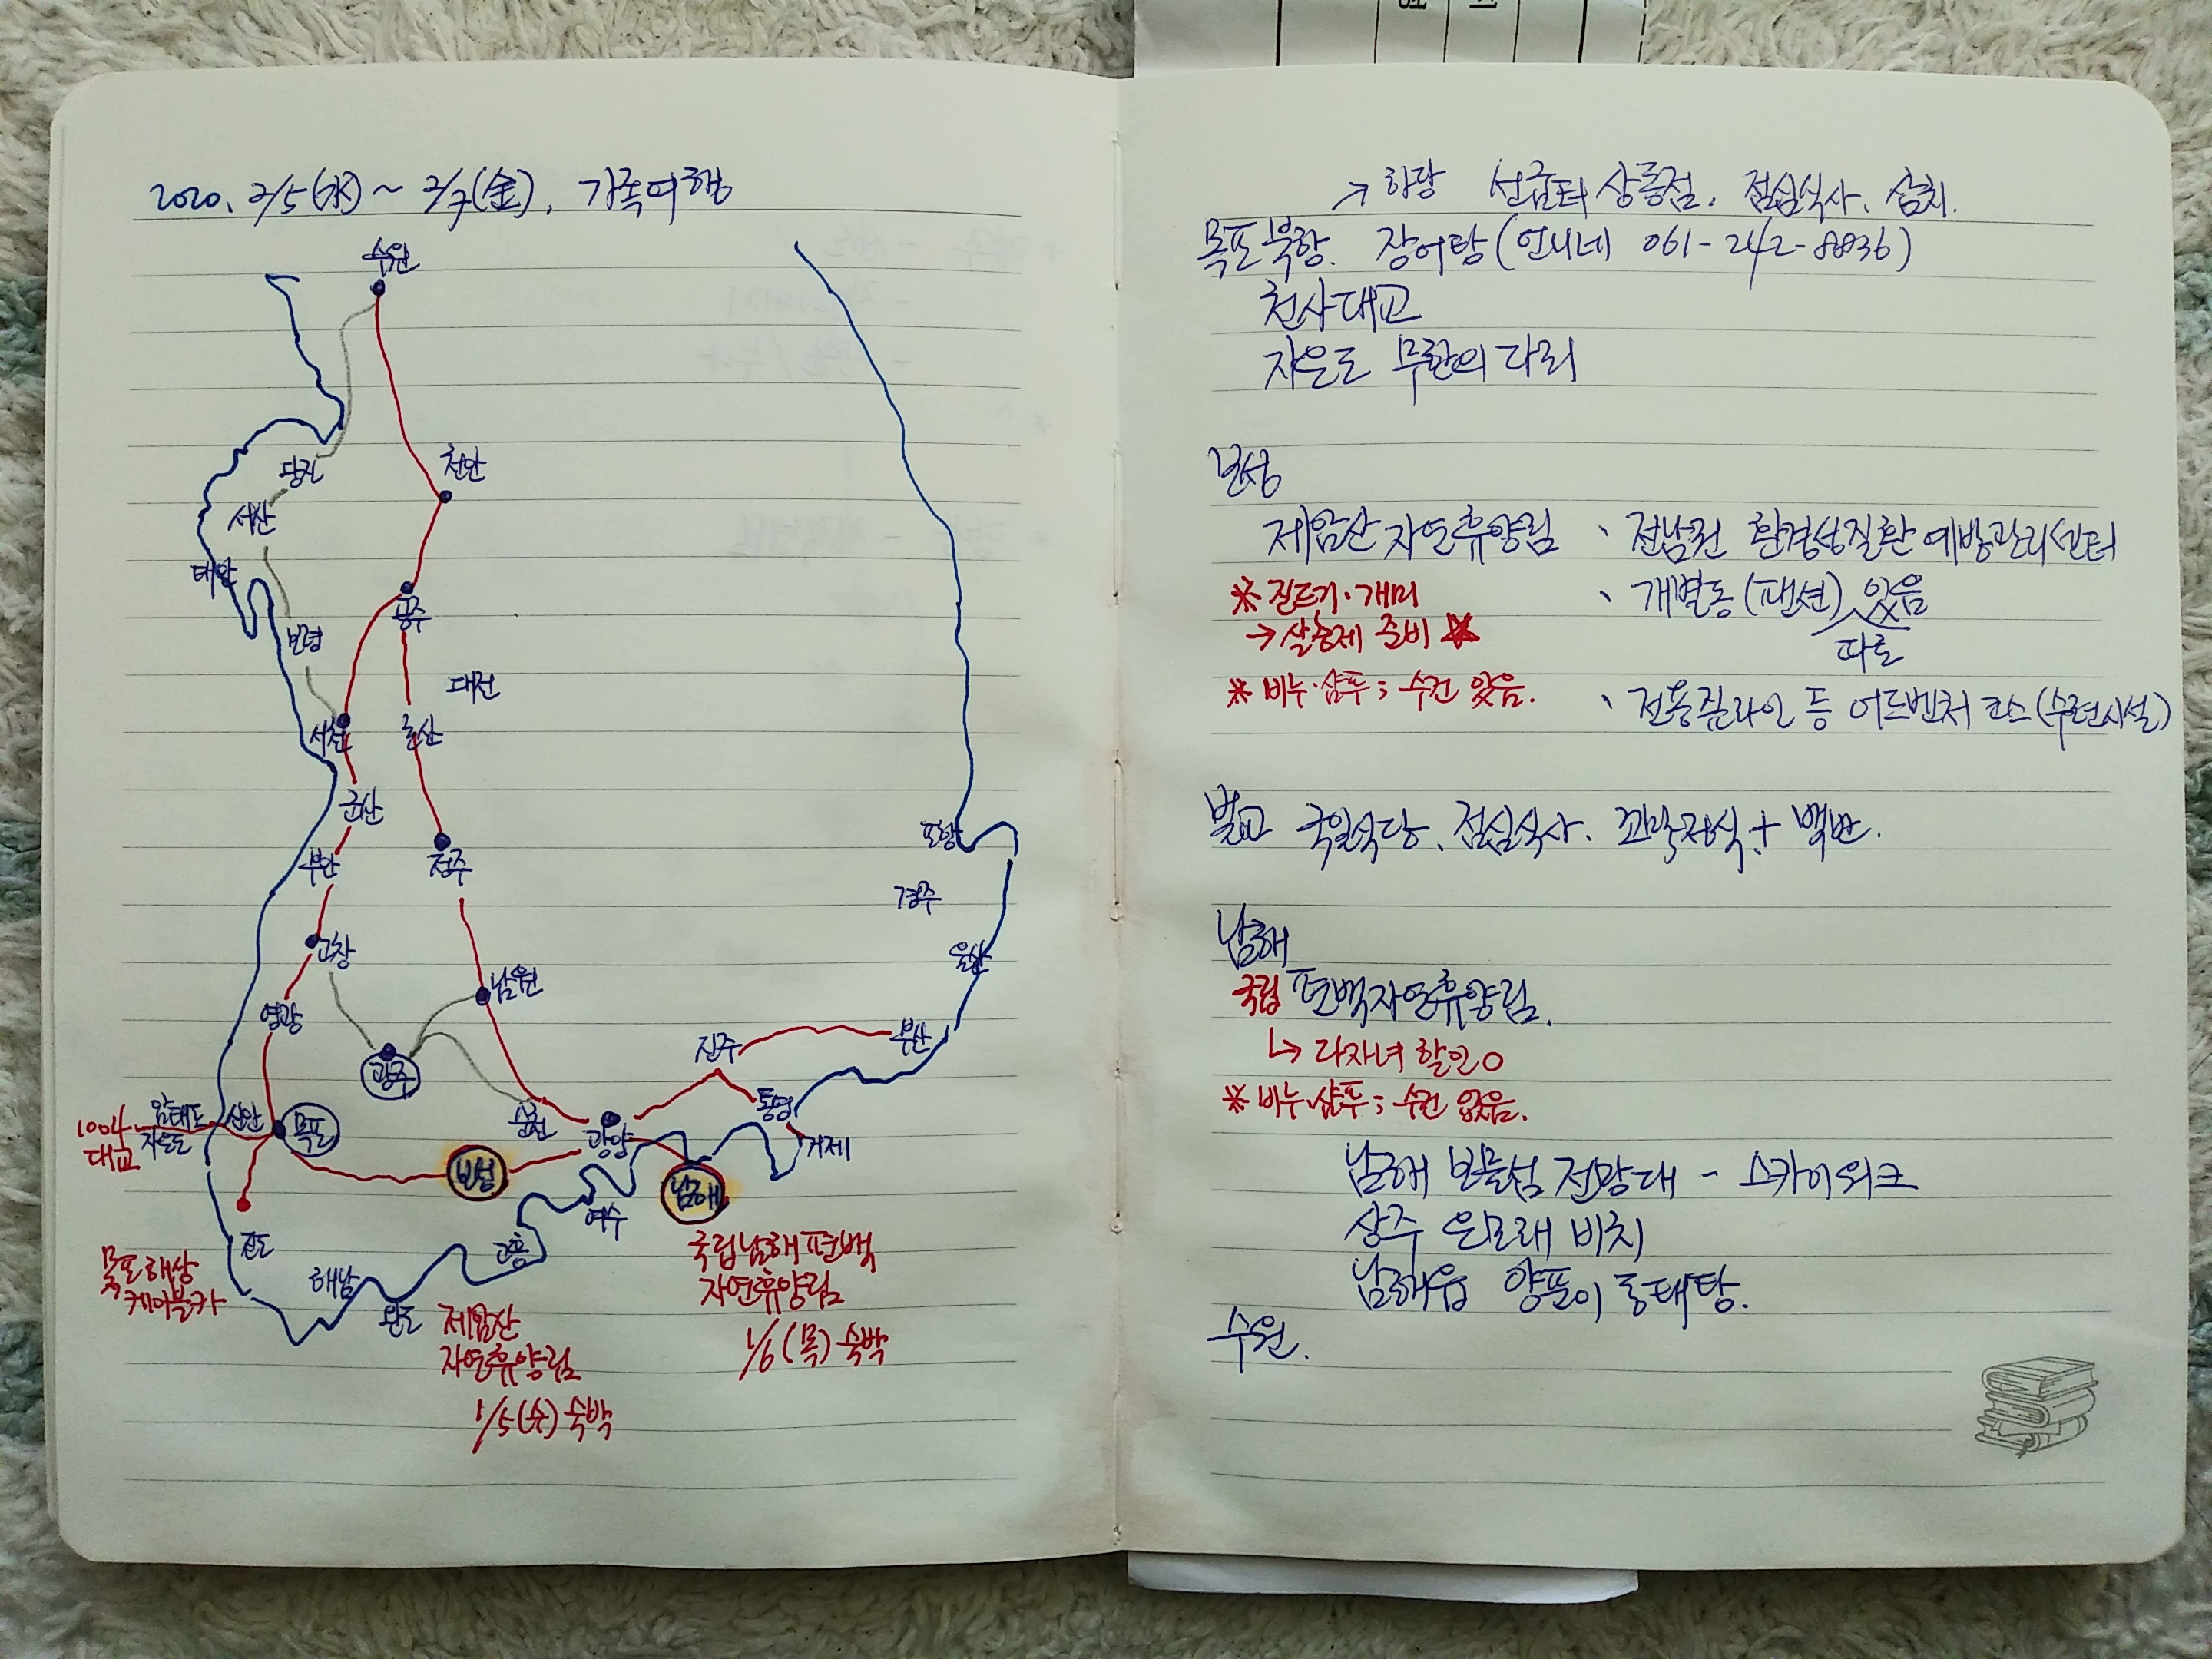 2020. 2/5(水) ~ 2/7(金). 가족여행
수원
천안
당진
서산
태안
공주
보령
대전
서천
논산
군산
포항
부안
전주
경주
고창
울산
남원
영광
진주
부산
광주
암태도
자은도
신안
목포
순천
광양
통영
거제
1004
대교
보성
남해
여수
진도
고흥
해남
완도
목포해상
케이블카
국립남해편백
자연휴양림
1/6(목) 숙박
제암산
자연휴양림
1/5(수) 숙박
→ 하당 선급터 상륭점. 점심식사. 삼치.
목포북항. 장어탕(언니네 061-242-8836)
천사대교
자은도 무한의 다리
보성
제암산 자연휴양림 、전남권 환경성질환 예방관리센터
※ 진드기·개미
→ 살충제 준비 ★
、개별동(팬션) 있음
따로
※ 비누·샴푸; 수건 있음.
、전용짚라인 등 어드벤처 코스(수련시설)
벌교 국일식당. 점심식사. 꼬막정식 + 백반.
남해
국립 편백자연휴양림.
↳ 다자녀 할인○
※ 비누·샴푸; 수건 없음.
남해 보물섬 전망대 - 스카이워크
상주 은모래 비치
남해읍 양푼이 동태탕.
수원.